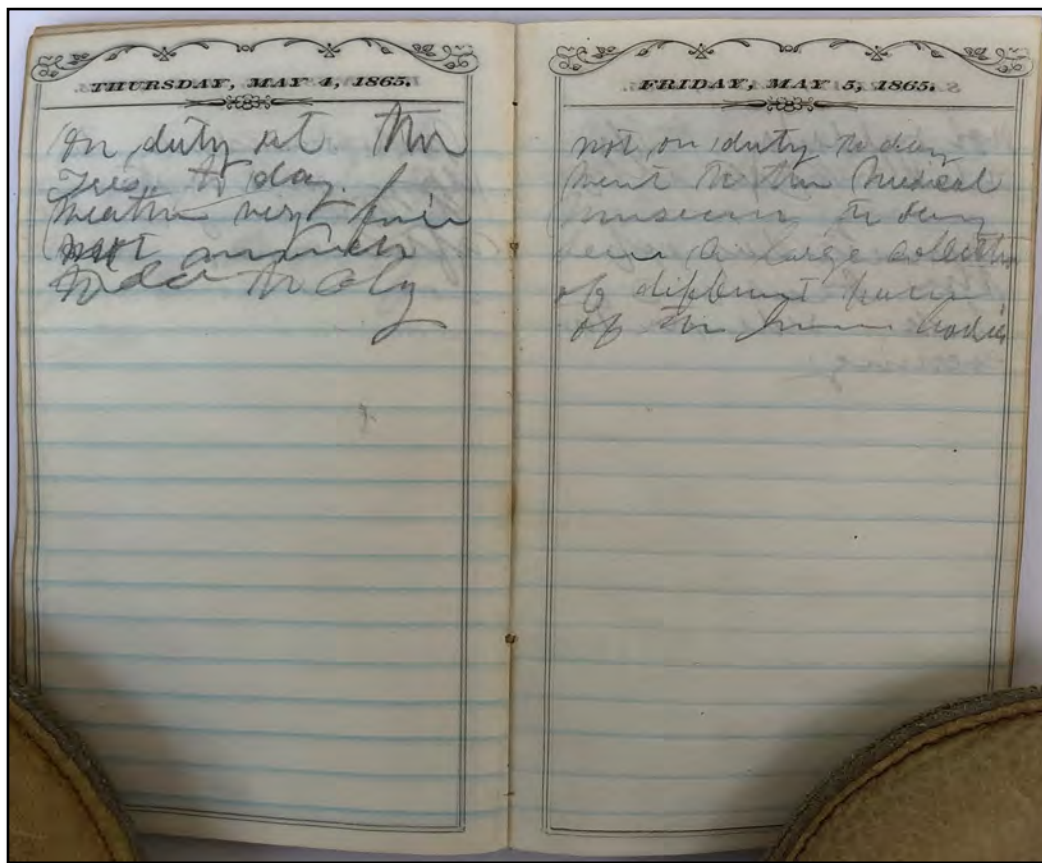 THURSDAY, MAY 4, 1865.
On duty at the
Tres. to day
weather very fair
not much
to day
FRIDAY, MAY 5, 1865.
not on duty to day
went to the Medical
museum to day
seen a large collection
of different
of the human bodies